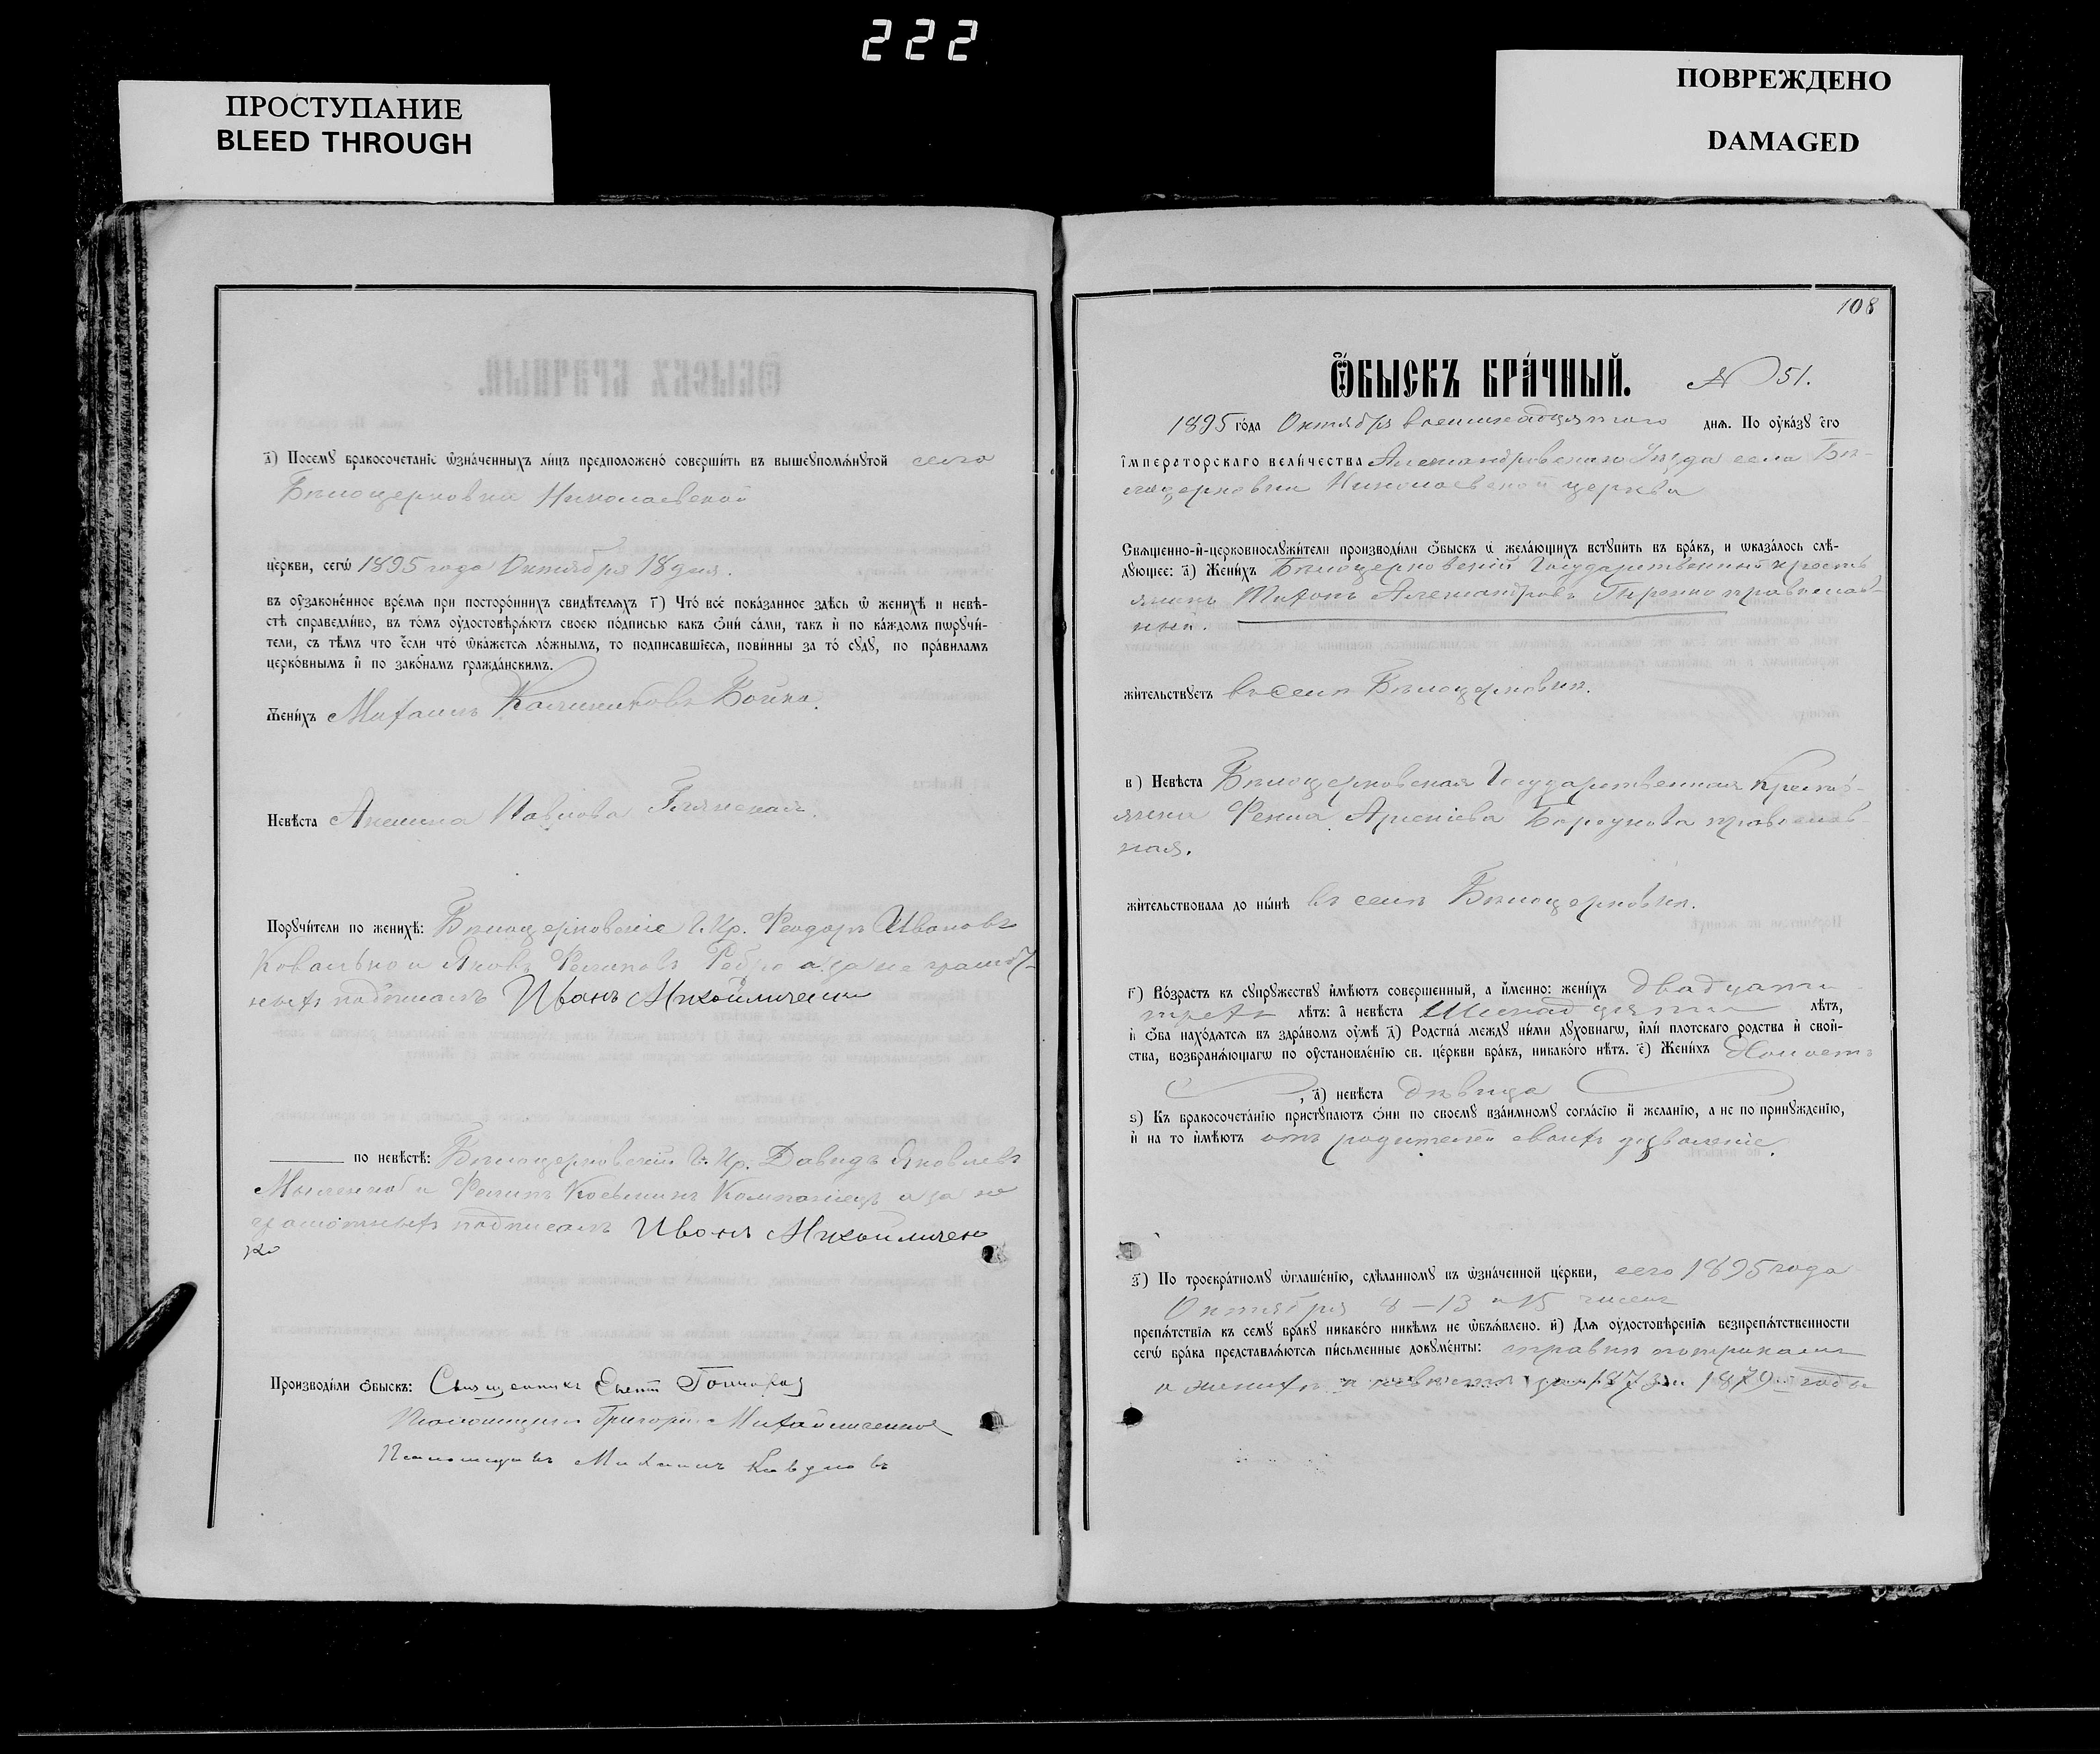 222
ПРОСТУПАНИЕ
BLEED THROUGH
ПОВРЕЖДЕНО
DAMAGED
а҃) Посемꙋ бракосочетанїе ѡ҆зна́ченныхъ ли́цъ предположено̀ соверши́ть въ вышеꙋпомѧ́нꙋтой сего
Бѣлоцерковки Николаевской
це́ркви, сегѡ̀ 1895 года Октября 18 дня.
въ ᲂу҆зако́ненное вре́мѧ при посторо́ннихъ свидѣ́телѧхъ г҃) Что̀ всѐ пока́занное здѣ́сь ѡ҆ женихѣ̀ и невѣ́-
стѣ справедли́во, въ то́мъ ᲂу҆достовѣрѧ́ютъ своею по́дписью какъ ѻ҆нѝ са́ми, такъ и҆ по ка́ждомъ пѡрꙋчи́-
тели, съ тѣ́мъ что е҆́сли что̀ ѡ҆ка́жетсѧ ло́жнымъ, то подписавшїесѧ, пови́нны за то̀ сꙋдꙋ̀, по пра́виламъ
церко́внымъ и҆ по зако́намъ гражда́нскимъ.
Жени́хъ Михаилъ Калиниковъ Бойко.
Невѣ́ста Акилина Павлова
Порꙋчи́тели по женихѣ̀: Бѣлоцерковскіе Г. Кр. Феодоръ Ивановъ
Ковалько и Яковъ Филиповъ Ребро а за не грамот-
ныхъ подписалъ Иванъ Михайличенко
по невѣ́стѣ: Бѣлоцерковскіи Г. Кр. Давидъ Яковлевъ
и Филипъ Косьминъ Компаніецъ а за не
грамотныхъ подписалъ Иванъ Михайличен
ко
Производи́ли ѻ҆́быскъ: Священникъ Гончаров
Псаломщикъ Григорій Михайличенко
Псаломщикъ Михаилъ
108
Ѻ҆́БЫСКЪ БРА́ЧНЫЙ. № 51.
1895 го́да Октября восемнадцятого днѧ. По ᲂу҆ка́зꙋ є҆гѡ̀
і҆мператорскагѡ вели́чества Александровскаго Уѣзда села Бѣ-
лоцерковки Николаевской церкви
Свѧще́нно-и҆-церковнослꙋжи́тели производи́ли ѻ҆́быскъ ѡ҆ жела́ющихъ встꙋпи́ть въ бра́къ, и ѡ҆каза́лось слѣ́-
дꙋющее: а҃) Жени́хъ Бѣлоцерковскій Государственный кресть
янинъ Тихонъ Александровъ Гиренко православ-
ный.
жи́тельствꙋетъ въ селѣ Бѣлоцерковкѣ.
в҃) Невѣ́ста Бѣлоцерковская Государственная Кресть-
янка Фекла Арсеніева православ-
ная.
жи́тельствовала до ны́нѣ въ селѣ Бѣлоцерковкѣ.
г҃) Во́зрастъ къ сꙋпрꙋ́жествꙋ и҆мѣ́ютъ соверше́нный, а и҆́менно: жени́хъ двадцати
трехъ лѣ́тъ: а҆ невѣ́ста Шеснадцати лѣ́тъ,
и҆ ѻ҆́ба нахо́дѧтсѧ въ здра́вомъ ᲂу҆мѣ̀ д҃) Родства̀ междꙋ ни́ми дꙋхо́внагѡ, и҆лѝ пло́тскаго родства̀ и҆ свой-
ства̀, возбранѧ́ющагѡ по ᲂу҆становле́нїю св. це́ркви бра́къ, никако́го нѣ́тъ. е҃) Жени́хъ Холостъ
, а҆) невѣ́ста дѣвица
ѕ҃) Къ бракосочета́нїю пристꙋпа́ютъ ѻ҆нѝ по своемꙋ̀ взаи́мномꙋ согла́сїю и҆ жела́нїю, а не по принꙋжде́нїю,
и҆ на то и҆мѣ́ютъ отъ родителей своихъ дозволеніе.
з҃) По троекра́тномꙋ ѡ҆глаше́нїю, сдѣ́ланномꙋ въ ѡ҆зна́ченной це́ркви, сего 1895 года
Октября 8 – 13 и 15 чиселъ
препѧ́тствїѧ къ семꙋ̀ бра́кꙋ никако́го никѣ́мъ не ѡ҆б̾ѧ́влено. и҃) Длѧ ᲂу҆достовѣ́ренїѧ безпрепѧ́тственности
сегѡ̀ бра́ка представлѧ́ютсѧ пи́сьменные докꙋме́нты: справки метрикали
о женихѣ и невѣстѣ за 1873 и 1879 годы